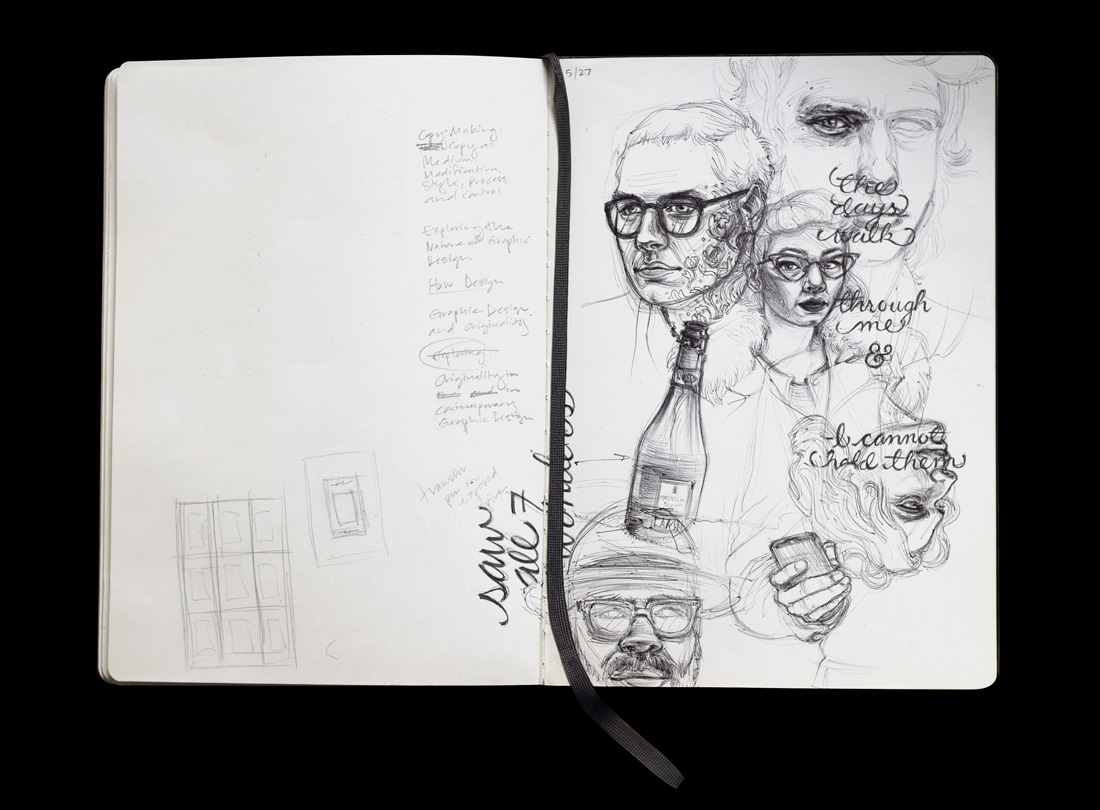 Copy-Making:
Copy as
Medium,
Modification,
Style, Process,
and Control
Exploring the
Nature of Graphic
Design
How Design
Graphic Design
and Originality
Exploring
Originality in
in
contemporary
Graphic Design
transfer
saw
all 7
wonders
5/27
the
days
walk
through
me
&
I cannot
hold them